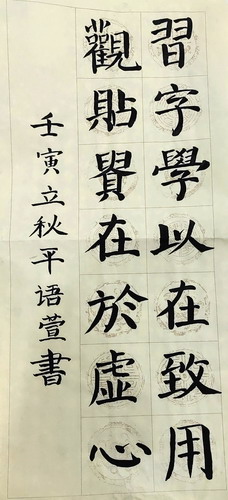 習字學以在致用
觀貼貴在於虛心
壬寅立秋平语萱書